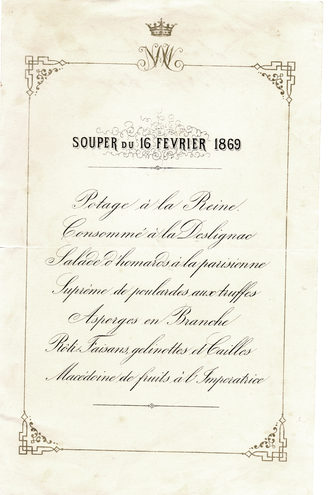 SOUPER DU 16 FEVRIER 1869
Potage à la Reine.
Consommé à la Deslignac
Salade d'homards à la parisienne
Suprème de poulardes aux truffes
Asperges en Branche
Rôti Faisans, gelinottes et Cailles
Macédoine de fruits à l'Imperatrice